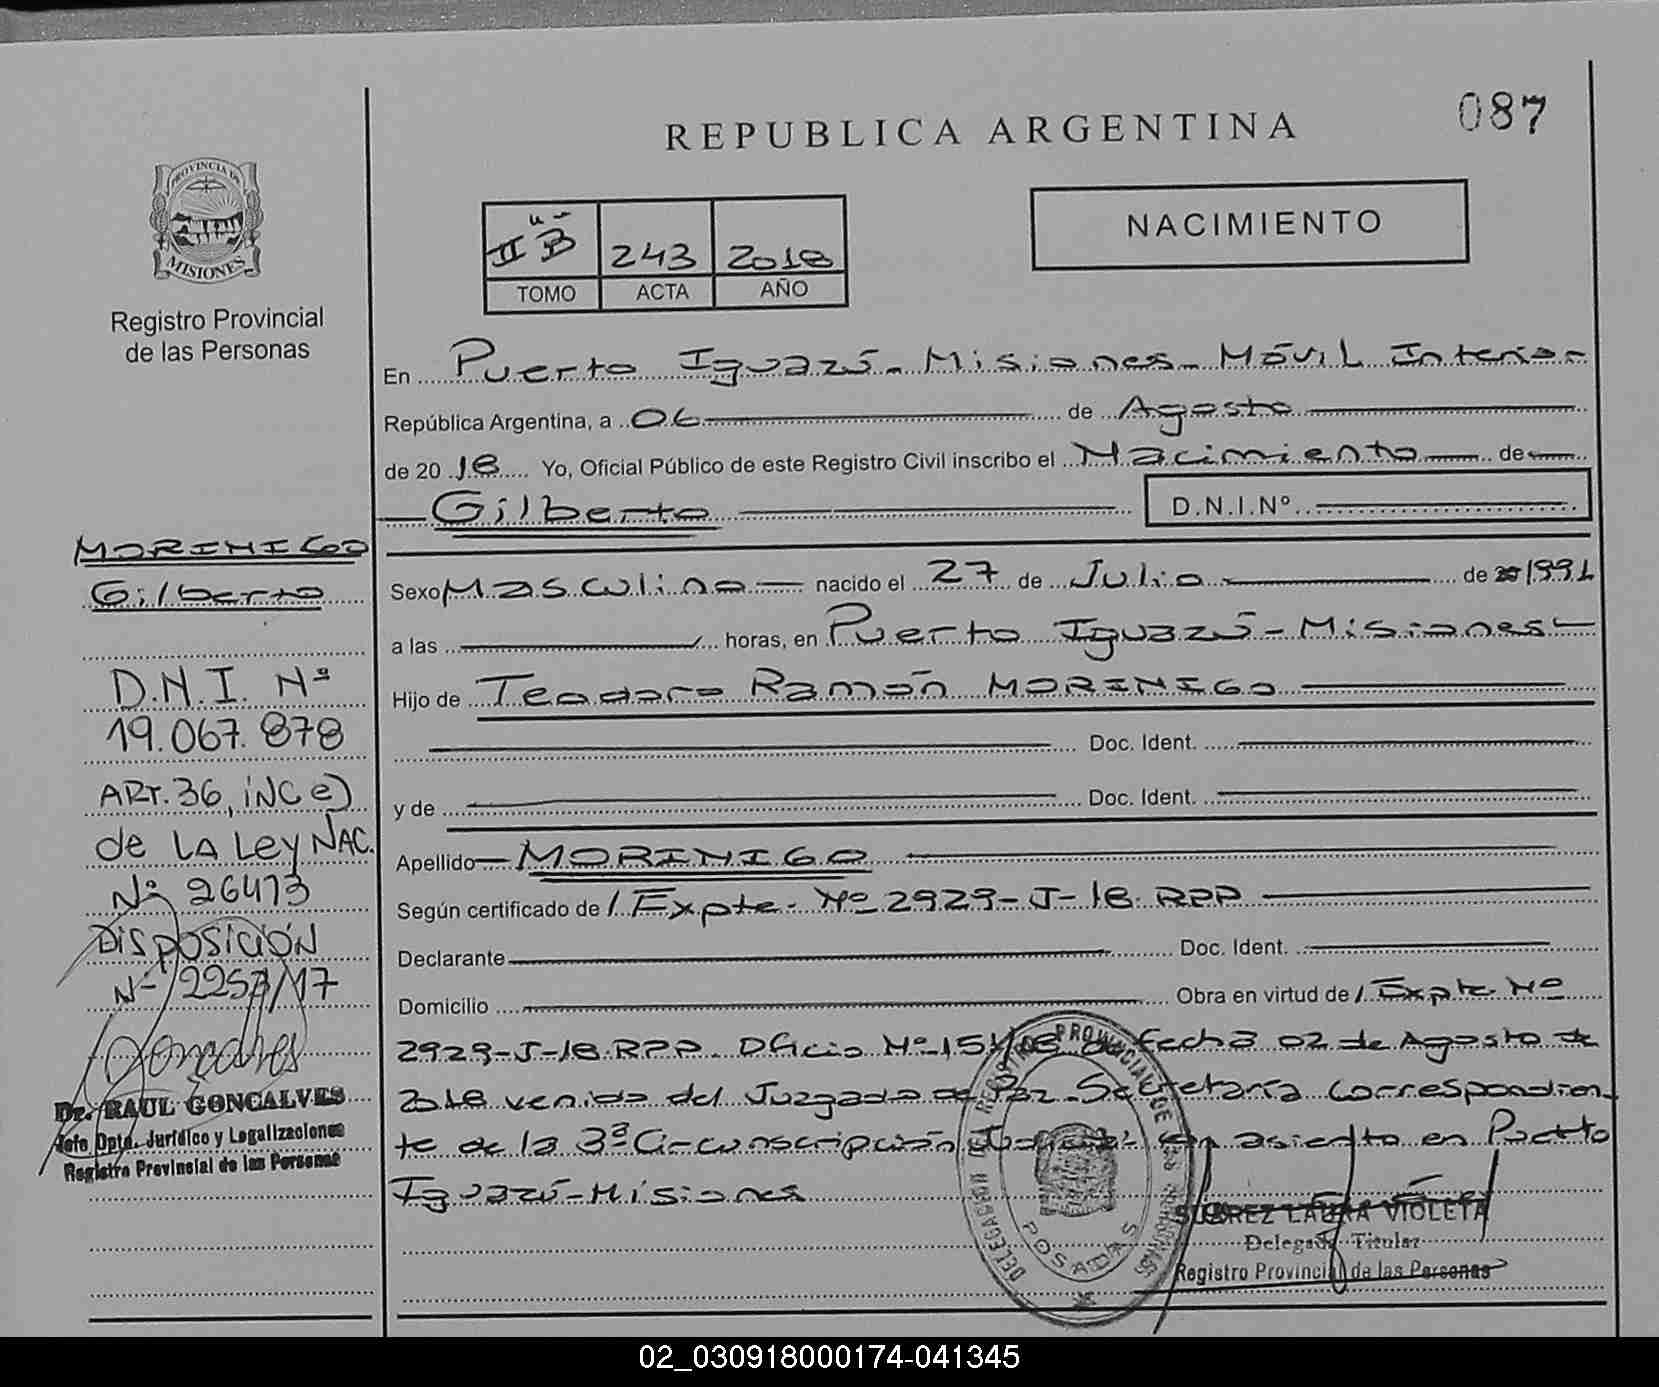 REPUBLICA ARGENTINA
087
PROVINCIA DE
MISIONES
Registro Provincial
de las Personas
II "B" 243 2018
TOMO ACTA AÑO
NACIMIENTO
En Puerto Iguazú - Misiones - Móvil Interior
República Argentina, a 06 de Agosto
de 2018 Yo, Oficial Público de este Registro Civil inscribo el Nacimiento de
Gilberto
D.N.I.Nº
Sexo Masculino nacido el 27 de Julio de 1991
a las horas, en Puerto Iguazú - Misiones -
Hijo de Teodoro Ramón MORINIGO
Doc. Ident.
y de Doc. Ident.
Apellido MORINIGO
Según certificado de / Expte. Nº 2929-J-18-RPP
Declarante Doc. Ident.
Domicilio Obra en virtud de / Expte. Nº
2929-J-18-RPP. Oficio Nº 151/18 de fecha 02 de Agosto de
2018 venido del Juzgado de Paz - Secretaría correspondien
te de la 3ª Circunscripción Judicial en asiento en Puerto
Iguazú - Misiones
MORINIGO
Gilberto
D.N.I. Nº
19.067.878
ART. 36, INC e)
de LA Ley NAC.
Nº 26413
DISPOSICIÓN
Nº 2257/17
Dr. RAUL GONCALVES
Jefe Dpto. Jurídico y Legalizaciones
Registro Provincial de las Personas
POSADAS
SUAREZ LAURA VIOLETA
Delegada Titular
Registro Provincial de las Personas
02_030918000174-041345